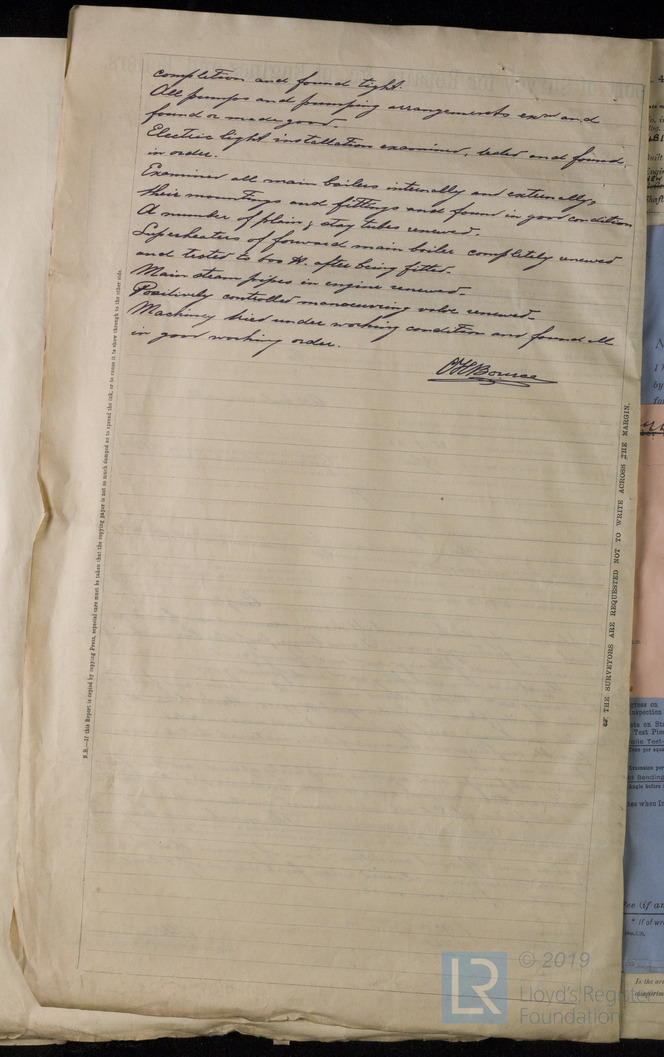 completion and found tight.
All pumps and pumping arrangements exd and
found or made good.
Electric light installation examined, tested and found
in order.
Examined all main boilers internally and externally,
their mountings and fittings and found in good condition
A number of plain & stay tubes renewed.
Superheaters of forward main boiler completely renewed
and tested to after being fitted.
Main steam pipes in engine renewed.
Positively controlled manoeuvring valve renewed.
Machinery tried under working condition and found all
in good working order.
N.B.—If this Report is copied by copying Press, especial care must be taken that the copying paper is not so much damped as to spread the ink, or to cause it to show through to the other side.
THE SURVEYORS ARE REQUESTED NOT TO WRITE ACROSS THE MARGIN.
LR
© 2019
Lloyd's Register
Foundation